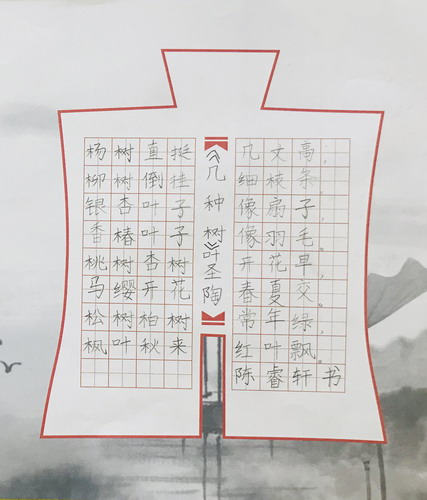 《几种树》叶圣陶
杨树直挺几丈高,
柳树倒挂细枝条。
银杏叶子像扇子,
香椿叶子像羽毛。
桃树杏树开花早,
马缨开花春夏交。
松树柏树常年绿,
枫叶秋来红叶飘。
陈睿轩书